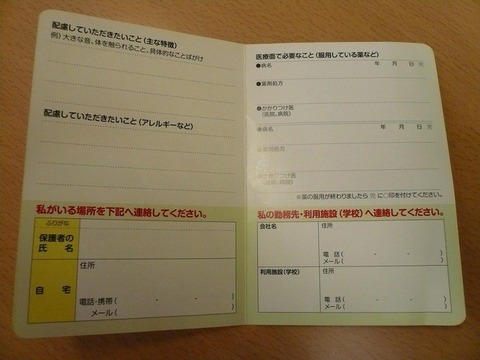 配慮していただきたいこと(主な特徴)
例)大きな音、体を触られること、具体的なことばがけ
配慮していただきたいこと(アレルギーなど)
私がいる場所を下記へ連絡してください。
ふりがな
保護者の
氏 名
自 宅
住所
電話・携帯( - - )
メール( )
医療面で必要なこと(服用している薬など)
●病名 年 月 日 完
●薬剤処方
●かかりつけ医
(医院、病院)
●病名 年 月 日 完
●薬剤処方
●かかりつけ医
(医院、病院)
※薬の服用が終わりましたら 完 に○印を付けてください。
私の勤務先・利用施設(学校)へ連絡してください。
会社名
住所
電 話( - - )
メール( )
利用施設(学校)
住所
電 話( - - )
メール( )